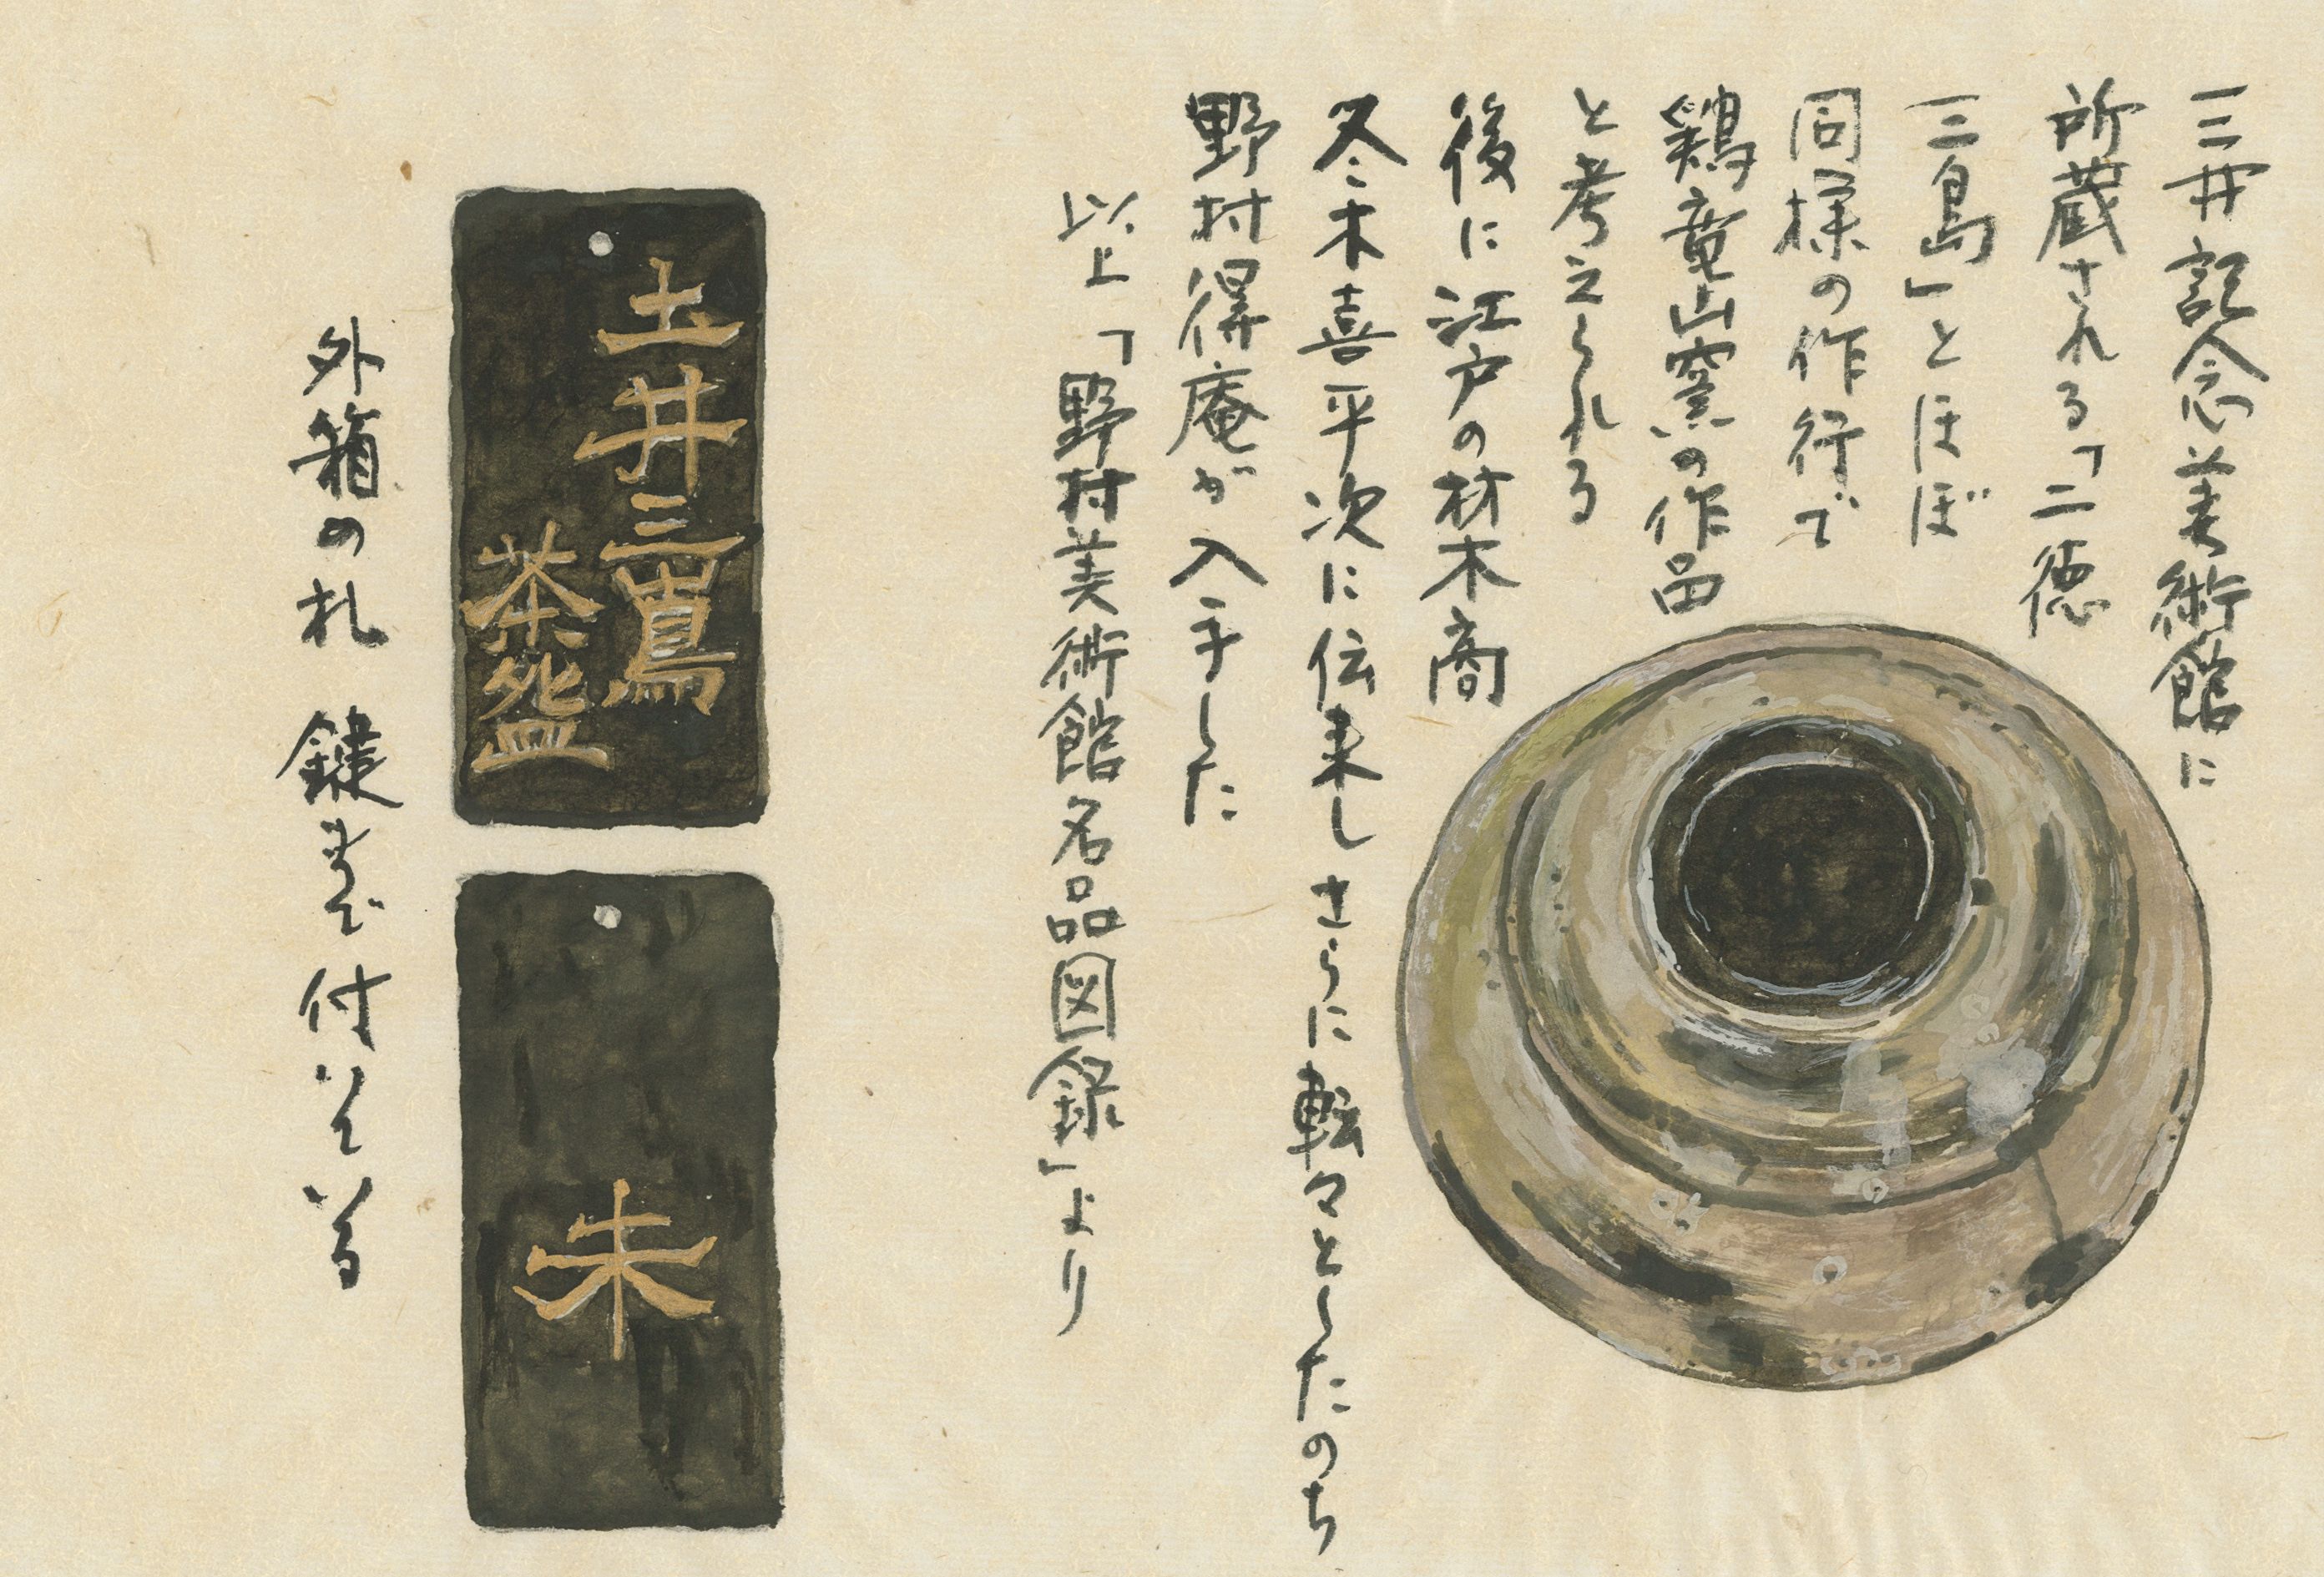 三井記念美術館に
所蔵される「二徳
三島」とほぼ
同様の作行で
鶏竜山窯の作品
と考えられる
後に江戸の材木商
冬木喜平次に伝来しさらに転々としたのち
野村得庵が入手した
以上「野村美術館名品図録」より
土井三嶌
茶盌
未
外箱の札 鍵まで付いている